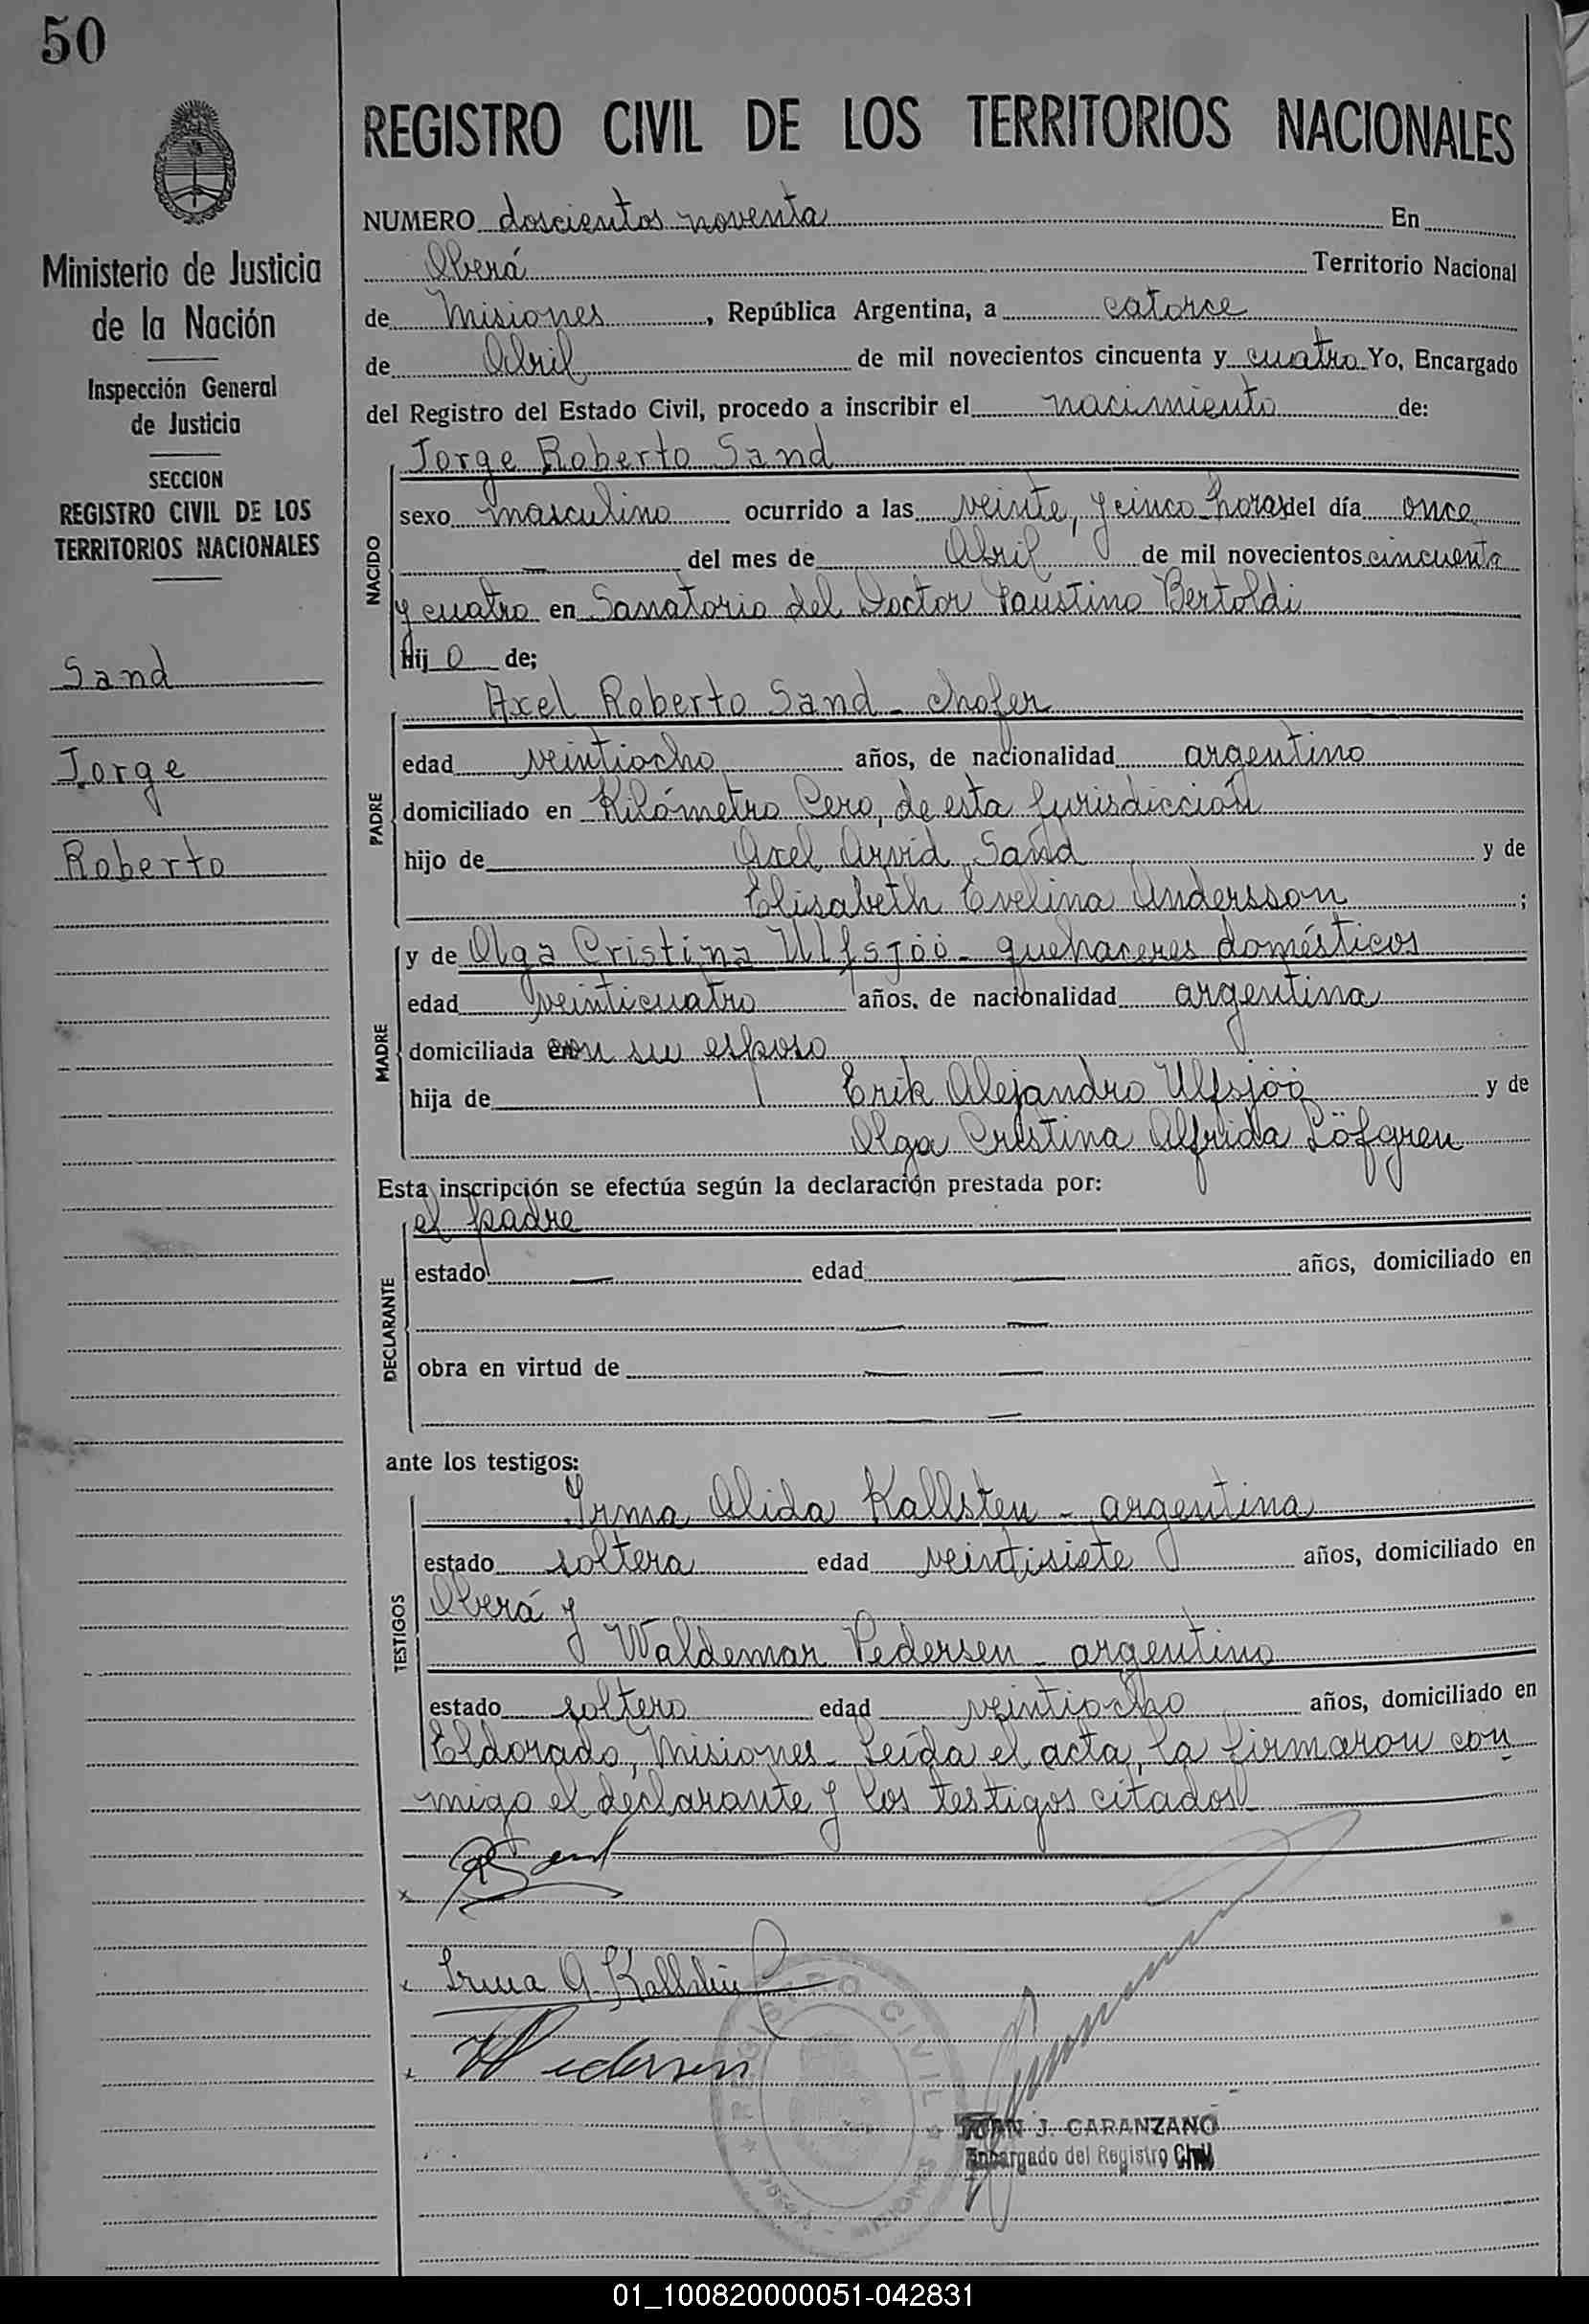 50
Ministerio de Justicia
de la Nación
Inspección General
de Justicia
SECCION
REGISTRO CIVIL DE LOS
TERRITORIOS NACIONALES
Sand
Jorge
Roberto
REGISTRO CIVIL DE LOS TERRITORIOS NACIONALES
NUMERO doscientos noventa En
Oberá Territorio Nacional
de Misiones, República Argentina, a catorce
de Abril de mil novecientos cincuenta y cuatro Yo, Encargado
del Registro del Estado Civil, procedo a inscribir el nacimiento de:
NACIDO
Jorge Roberto Sand
sexo masculino ocurrido a las veinte, y cinco horas del día once
— del mes de Abril de mil novecientos cincuenta
y cuatro en Sanatorio del Doctor Faustino Bertoldi
hijo de;
PADRE
Axel Roberto Sand - chofer
edad veintiocho años, de nacionalidad argentino
domiciliado en Kilómetro Cero, de esta jurisdicción
hijo de Axel Arvid Sand y de
Elisabeth Evelina Andersson ;
MADRE
y de Olga Cristina Ulfsjöö - quehaceres domésticos
edad veinticuatro años, de nacionalidad argentina
domiciliada con su esposo
hija de Erik Alejandro Ulfsjöö y de
Olga Cristina Alfrida Löfgren
Esta inscripción se efectúa según la declaración prestada por:
DECLARANTE
el padre
estado — edad — años, domiciliado en
— —
obra en virtud de — —
— —
ante los testigos:
TESTIGOS
Irma Alida Kallsten - argentina
estado soltera edad veintisiete años, domiciliado en
Oberá y
Waldemar Pedersen - argentino
estado soltero edad veintiocho años, domiciliado en
Eldorado, Misiones - Leída el acta, la firmaron con
migo el declarante y los testigos citados
x Sand
x Irma A. Kallsten
x W Pedersen
REGISTRO CIVIL
JUAN J. GARANZANO
Encargado del Registro Civil
01_100820000051-042831